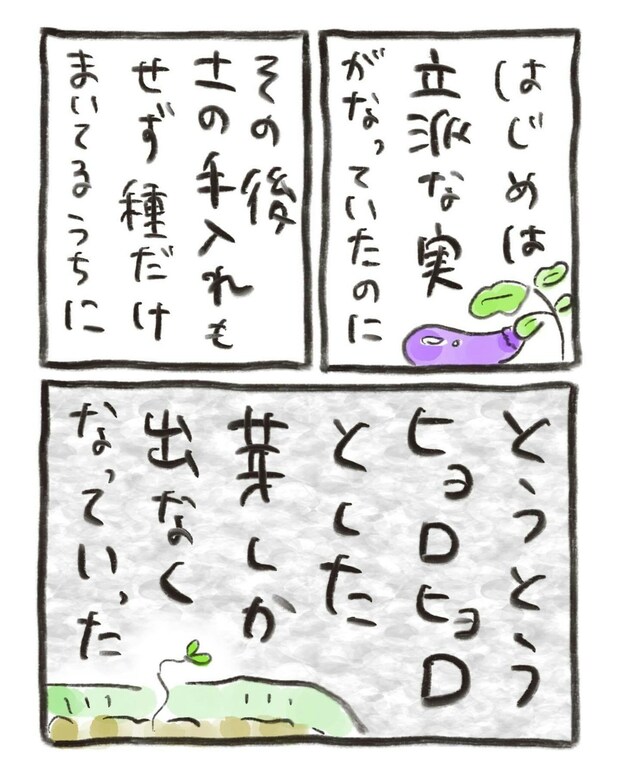 はじめは
立派な実
がなっていたのに
その後
土の手入れも
せず種だけ
まいてるうちに
とうとう
ヒョロヒョロ
とした
芽しか
出なく
なっていった